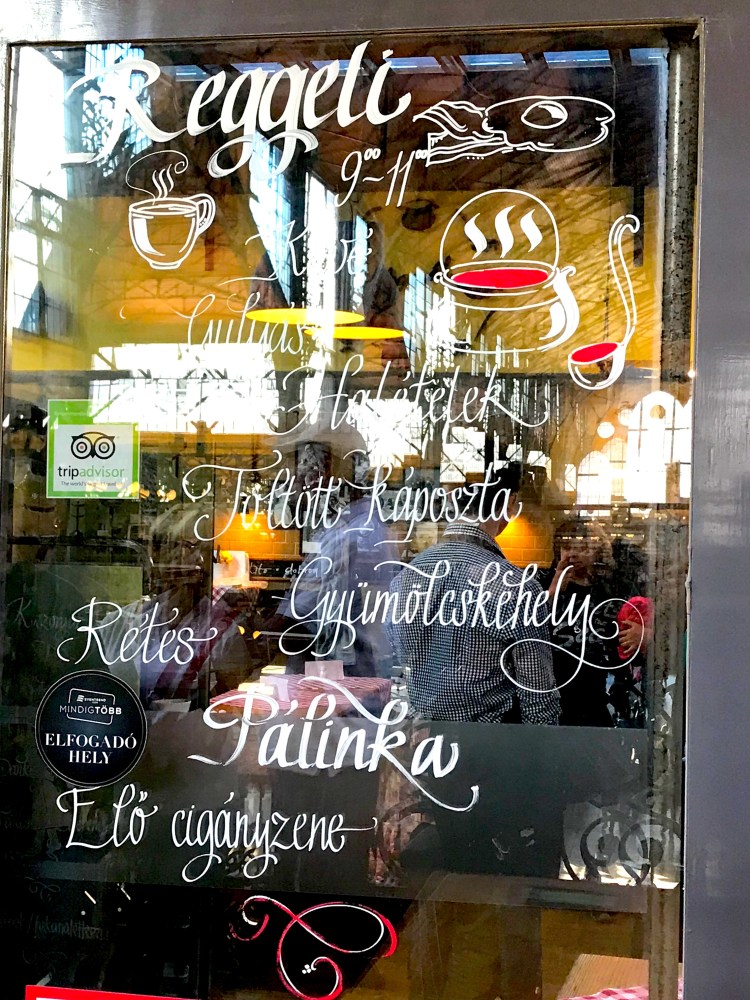 Reggeli
9⁰⁰~11⁰⁰
Kávé
Gulyás
Halételek
tripadvisor
Töltött káposzta
Gyümölcskehely
Rétes
MINDIGTÖBB
ELFOGADÓ
HELY
Pálinka
Élő cigányzene